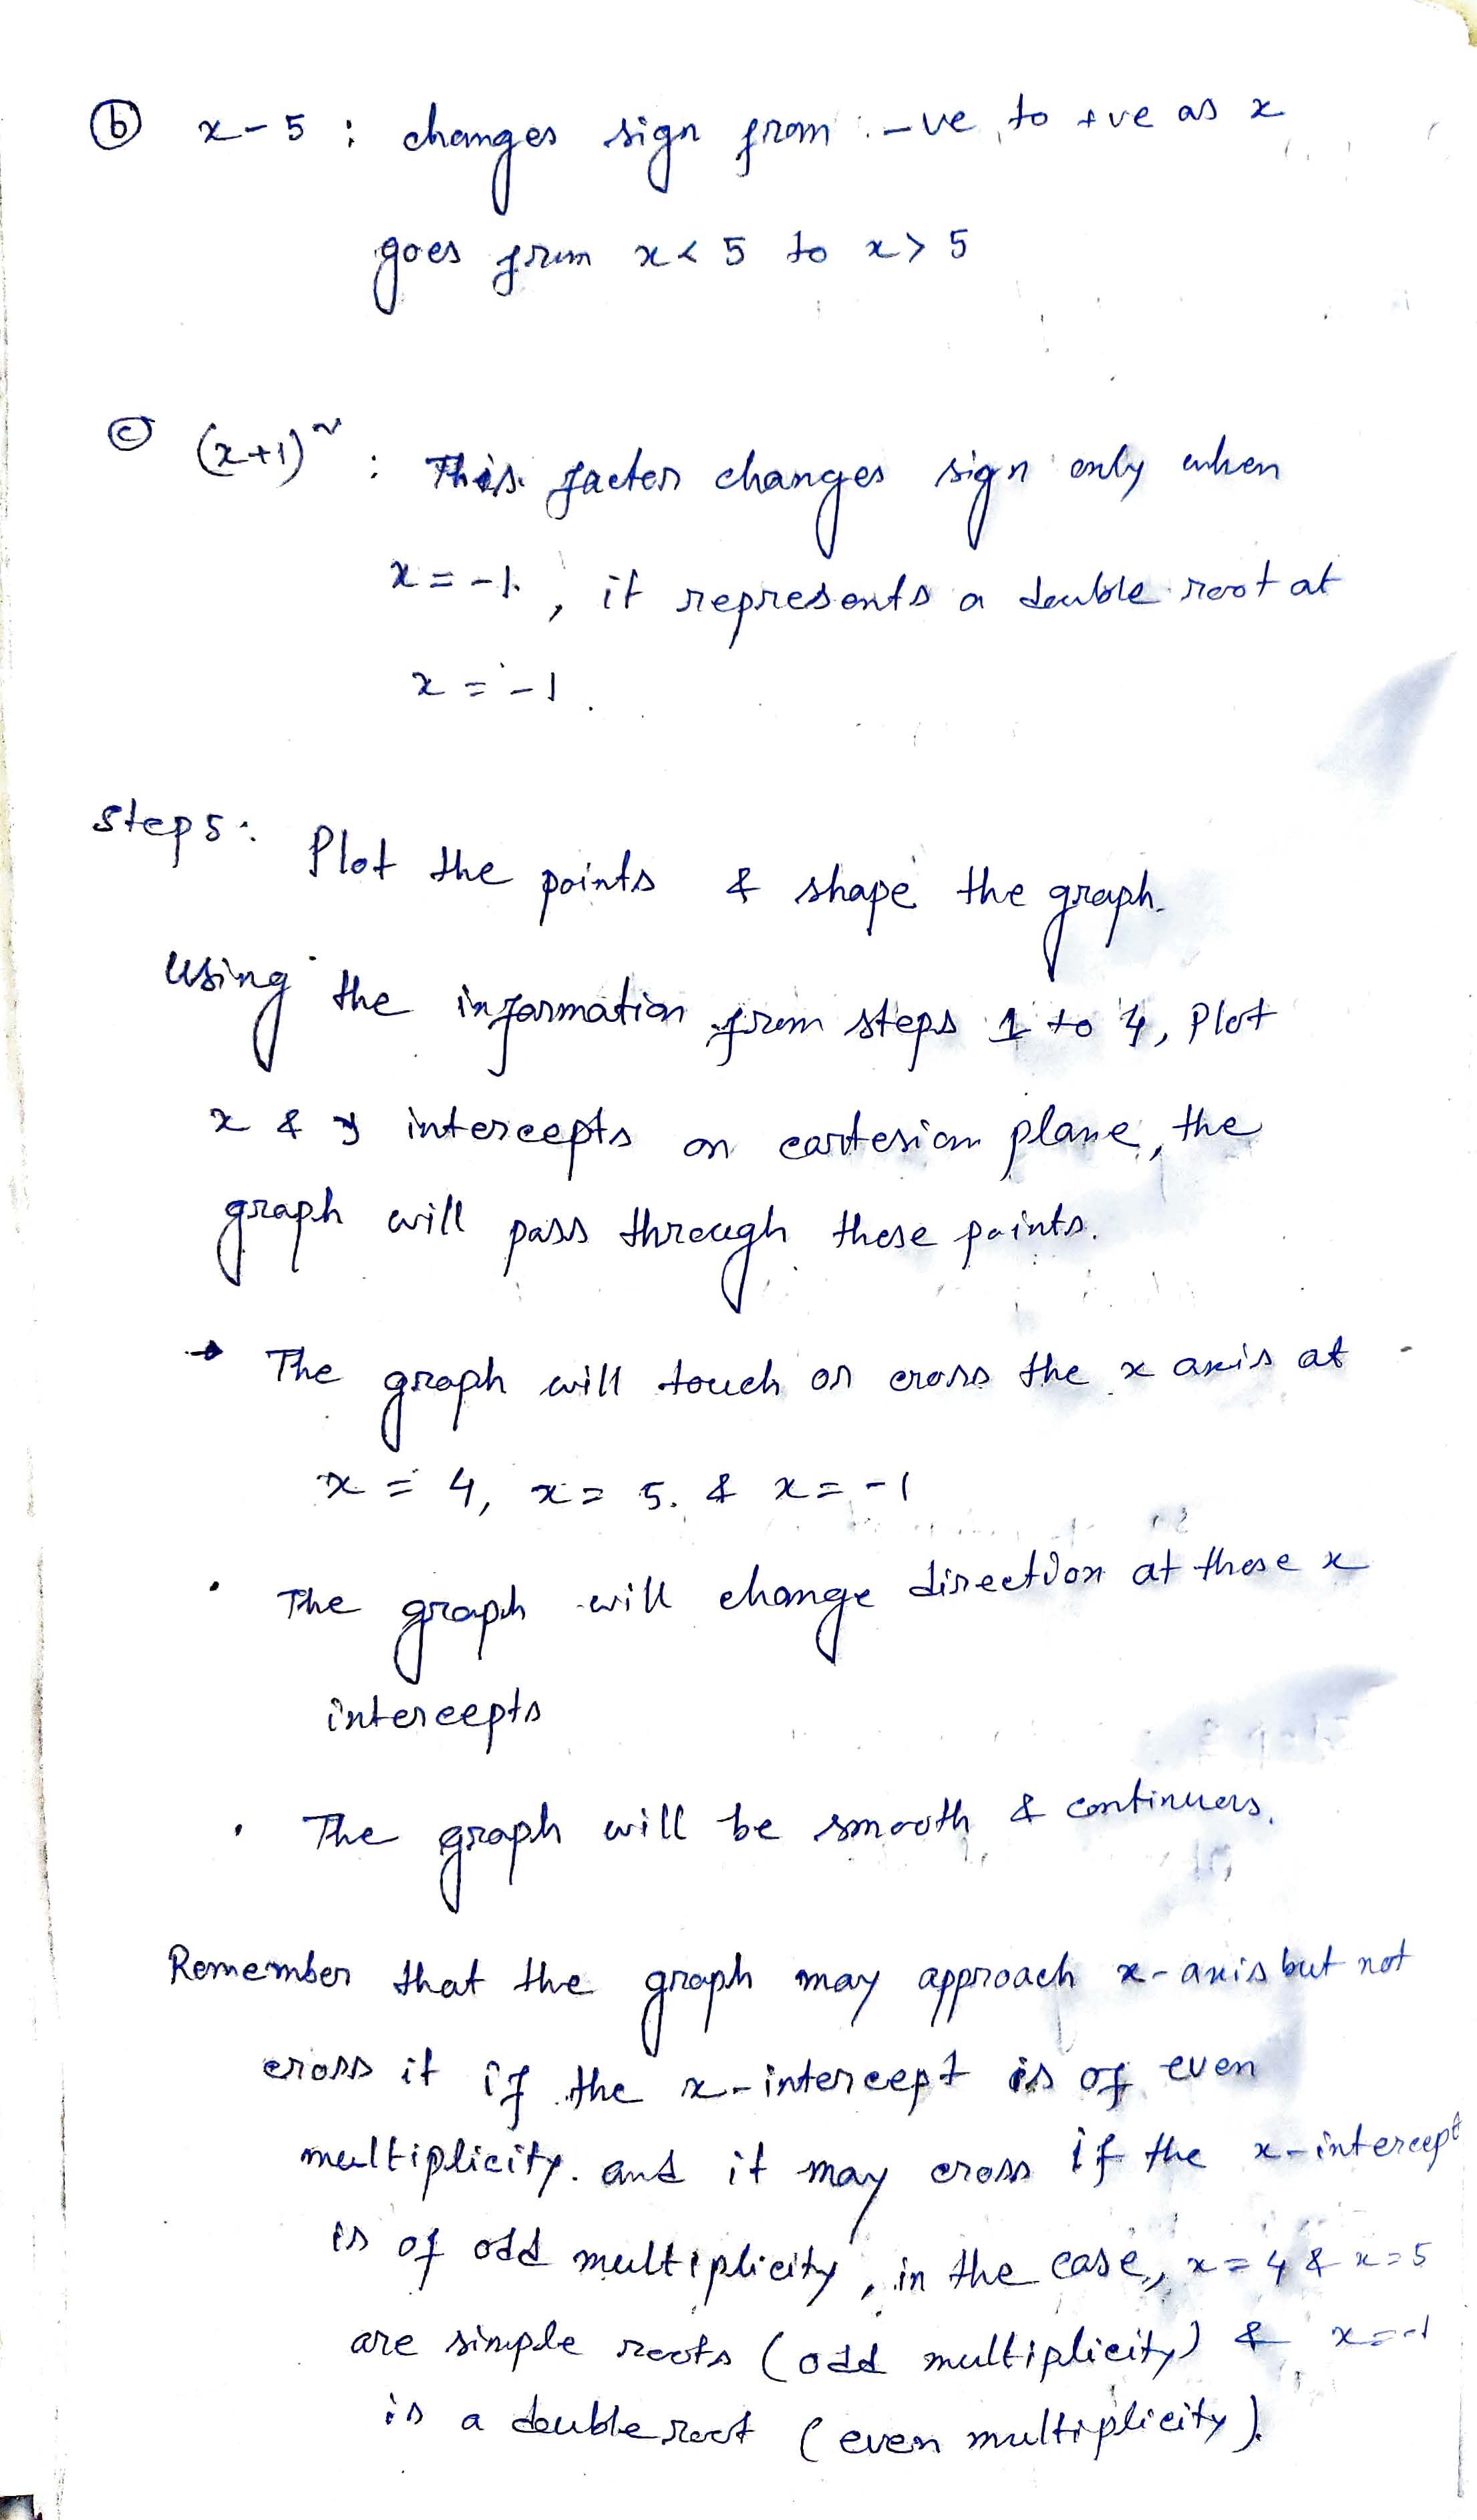 ⓑ x-5 : changes sign from -ve to +ve as x
goes from x < 5 to x > 5
ⓒ (x+1)² : This factor changes sign only when
x = -1, it represents a double root at
x = -1.
Step 5: Plot the points & shape the graph.
Using the information from steps 1 to 4, Plot
x & y intercepts on cartesian plane, the
graph will pass through these points.
→ The graph will touch or cross the x axis at
x = 4, x = 5. & x = -1
• The graph will change direction at these x
intercepts
• The graph will be smooth & continuous.
Remember that the graph may approach x-axis but not
cross it if the x-intercept is of even
multiplicity. and it may cross if the x-intercept
is of odd multiplicity, in the case, x = 4 & x = 5
are simple roots (odd multiplicity) & x = -1
is a double root (even multiplicity).